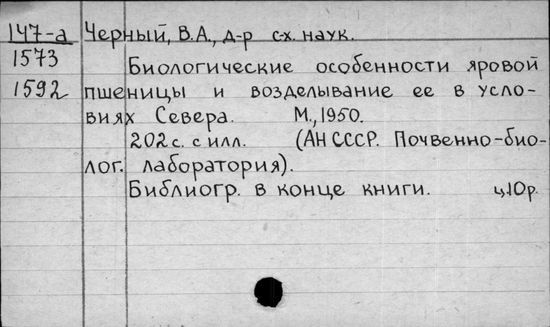 147-а Черный, В.А., д-р с-х. наук.
1573 Биологические особенности яровой
1592 пшеницы и возделывание ее в усло-
виях Севера. М., 1950.
202 с. с илл. (АН СССР. Почвенно-био-
лог. лаборатория).
Библиогр. в конце книги. ц.10р.